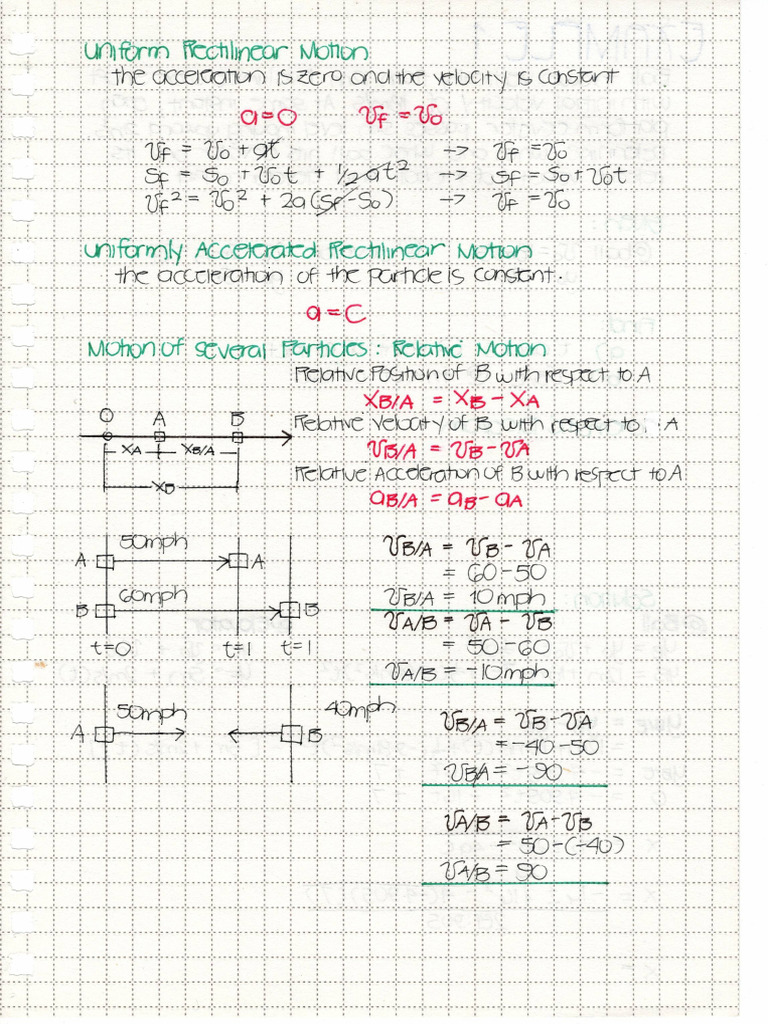 Uniform Rectilinear Motion
the acceleration is zero and the velocity is constant
a = 0 vf = v0
vf = v0 + at -> vf = v0
sf = s0 + v0t + 1/2 at² -> sf = s0 + v0t
vf² = v0² + 2a(sf - s0) -> vf = v0
Uniformly Accelerated Rectilinear Motion
the acceleration of the particle is constant.
a = C
Motion of Several Particles: Relative Motion
Relative Position of B with respect to A
XB/A = XB - XA
Relative Velocity of B with respect to A
vB/A = vB - vA
Relative Acceleration of B with respect to A
aB/A = aB - aA
O A B
XA XB/A
XB
50mph
A A
60mph
B B
t=0 t=1 t=1
vB/A = vB - vA
= 60 - 50
vB/A = 10 mph
vA/B = vA - vB
= 50 - 60
vA/B = -10mph
50mph 40mph
A B
vB/A = vB - vA
= -40 - 50
vB/A = -90
vA/B = vA - vB
= 50 - (-40)
vA/B = 90